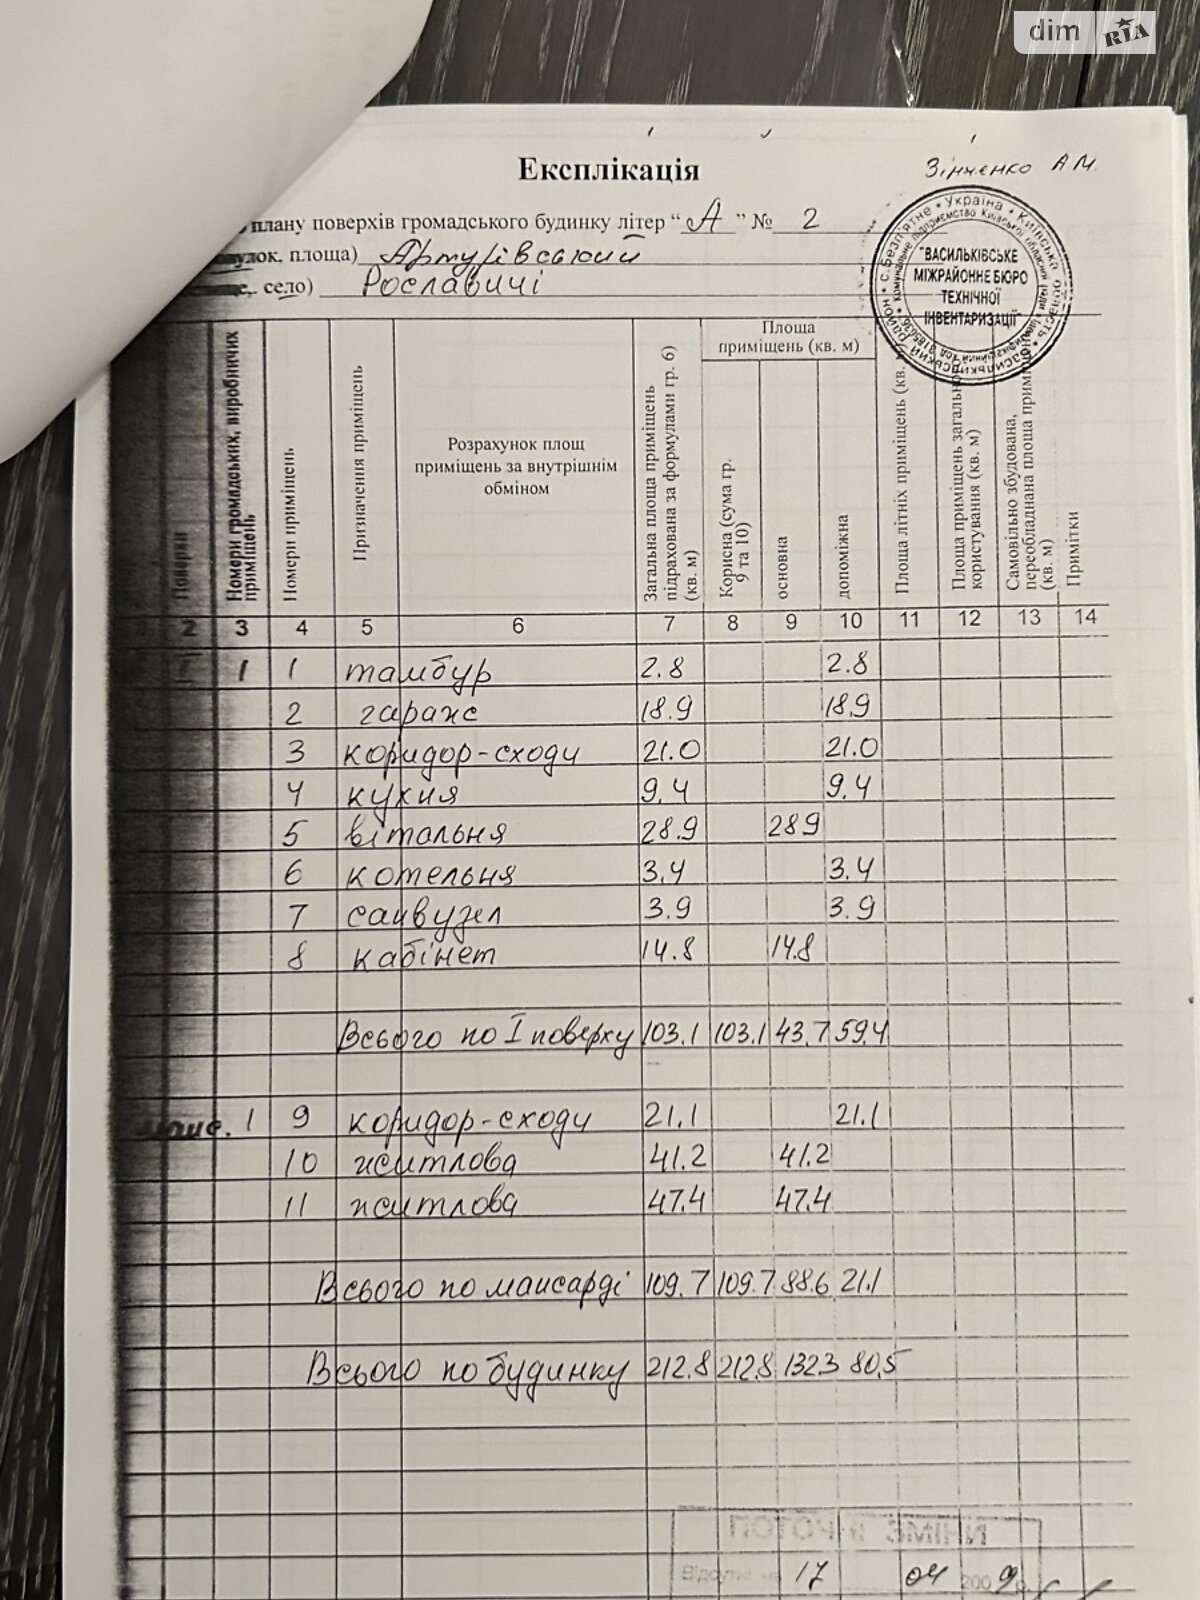 dim RIA
Експлікація
Зінченко А М.
плану поверхів громадського будинку літер “ А ” № 2
площа)
село) Рославичі
с. Безп'ятне • Україна • Київська область • Васильківський район
"ВАСИЛЬКІВСЬКЕ
МІЖРАЙОННЕ БЮРО
ТЕХНІЧНОЇ
ІНВЕНТАРИЗАЦІЇ"
Поверхи
Номери громадських, виробничих приміщень
Номери приміщень
Призначення приміщень
Розрахунок площ
приміщень за внутрішнім
обміном
Загальна площа приміщень підрахована за формулами гр. 6) (кв. м)
Площа
приміщень (кв. м)
Корисна (сума гр. 9 та 10)
основна
допоміжна
Площа літніх приміщень (кв.
Площа приміщень загального користування (кв. м)
Самовільно збудована, переобладнана площа (кв. м)
Примітки
2 3 4 5 6 7 8 9 10 11 12 13 14
1 1 тамбур 2.8 2.8
2 гараж 18.9 18.9
3 коридор-сходи 21.0 21.0
4 кухня 9.4 9.4
5 вітальня 28.9 28.9
6 котельня 3.4 3.4
7 санвузел 3.9 3.9
8 кабінет 14.8 14.8
Всього по І поверху 103.1 103.1 43.7 59.4
манс. 1 9 коридор-сходи 21.1 21.1
10 житлова 41.2 41.2
11 житлова 47.4 47.4
Всього по мансарді 109.7 109.7 88.6 21.1
Всього по будинку 212.8 212.8 132.3 80.5
ПОТОЧНІ ЗМІНИ
17 04 2009 р.